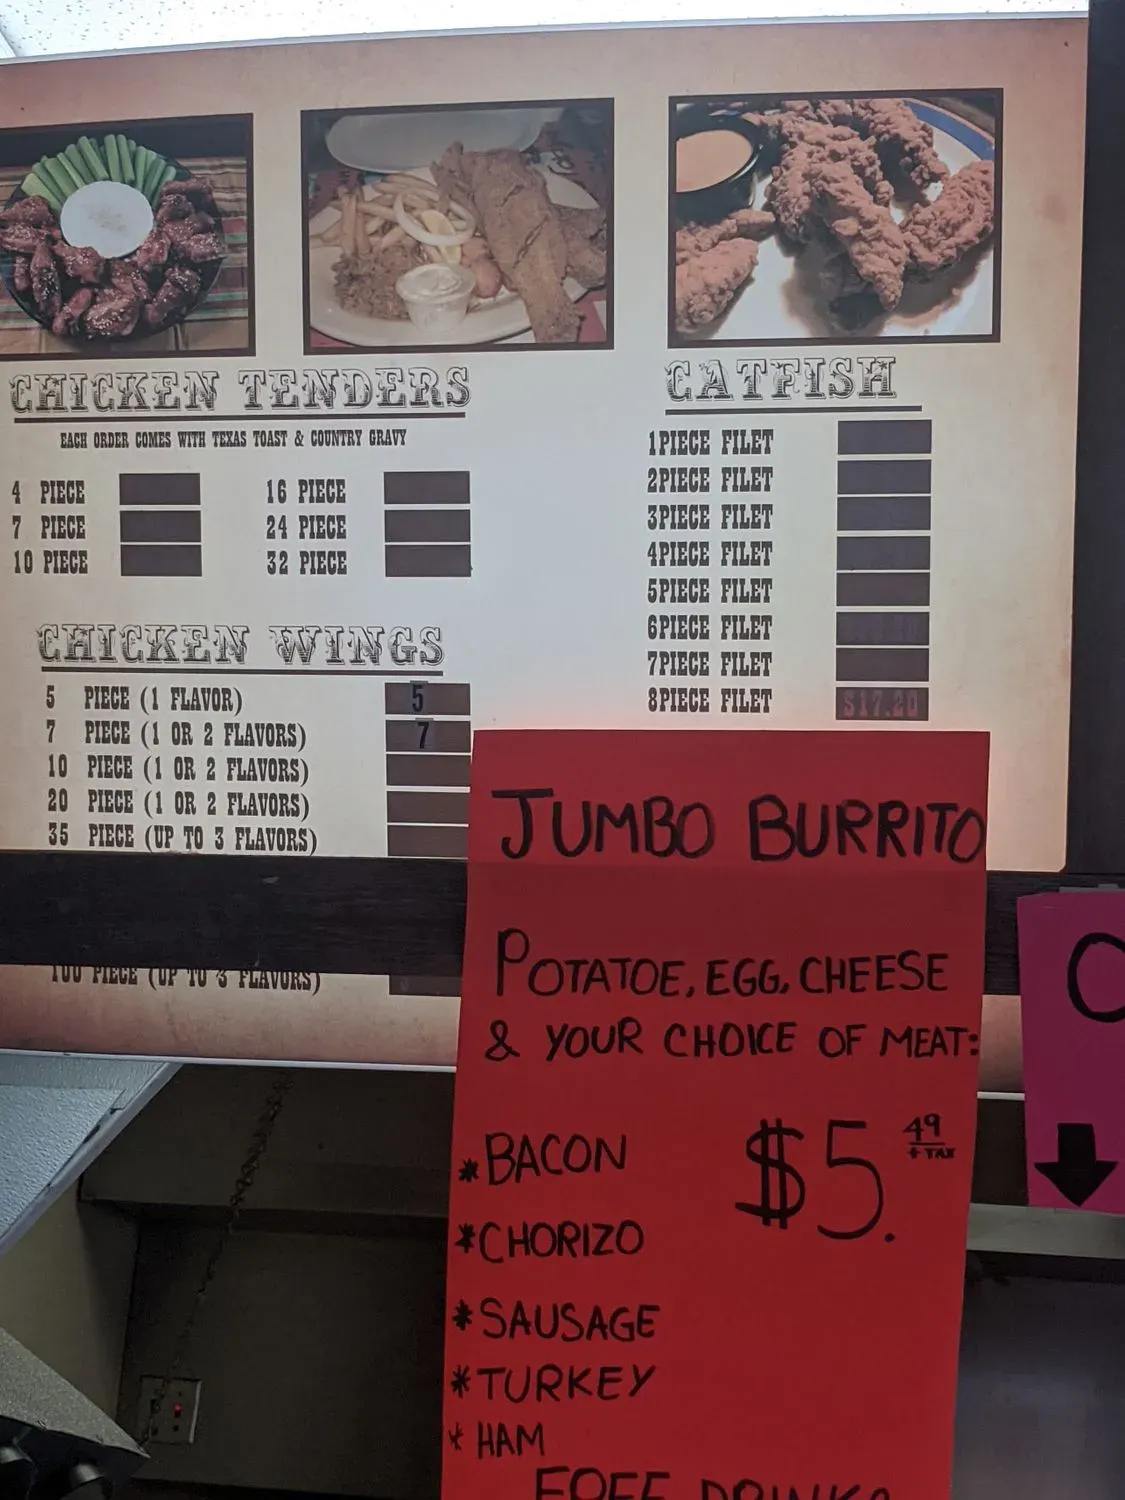 CHICKEN TENDERS
EACH ORDER COMES WITH TEXAS TOAST & COUNTRY GRAVY
4 PIECE
7 PIECE
10 PIECE
16 PIECE
24 PIECE
32 PIECE
CHICKEN WINGS
5 PIECE (1 FLAVOR) 5
7 PIECE (1 OR 2 FLAVORS) 7
10 PIECE (1 OR 2 FLAVORS)
20 PIECE (1 OR 2 FLAVORS)
35 PIECE (UP TO 3 FLAVORS)
100 PIECE (UP TO 3 FLAVORS)
CATFISH
1PIECE FILET
2PIECE FILET
3PIECE FILET
4PIECE FILET
5PIECE FILET
6PIECE FILET
7PIECE FILET
8PIECE FILET $17.20
JUMBO BURRITO
POTATOE, EGG, CHEESE
& YOUR CHOICE OF MEAT:
* BACON
* CHORIZO
* SAUSAGE
* TURKEY
* HAM
$5.49
+ TAX
FREE DRINK